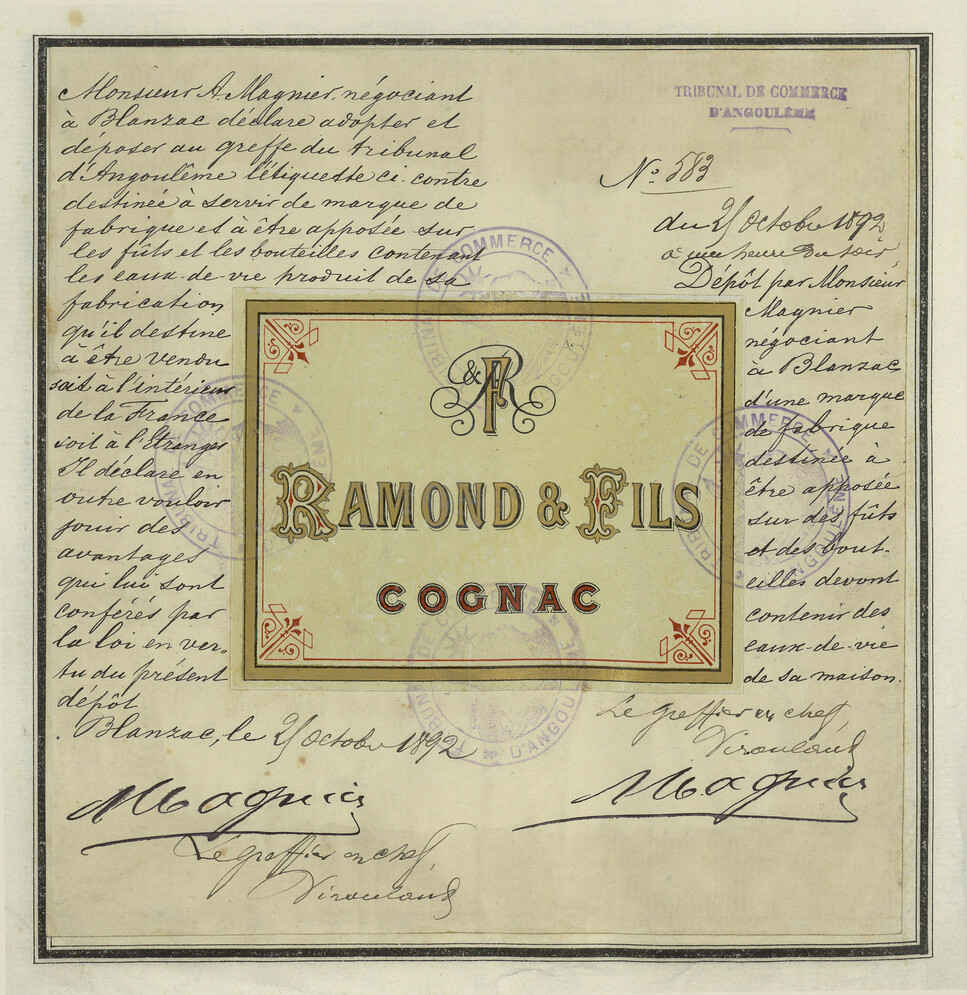 Monsieur A. Magnier, négociant
à Blanzac déclare adopter et
déposer au greffe du tribunal
d'Angoulême l'étiquette ci-contre
destinée à servir de marque de
fabrique et à être apposée sur
les fûts et les bouteilles contenant
les eaux-de-vie produit de sa
fabrication
qu'il destine
à être vendu
soit à l'intérieur
de la France
soit à l'Etranger
Il déclare en
outre vouloir
jouir des
avantages
qui lui sont
conférés par
la loi en ver-
tu du présent
dépôt
Blanzac, le 25 Octobre 1892
Magnier
Le greffier en chef,
TRIBUNAL DE COMMERCE
D'ANGOULÊME
N° 583
du 25 Octobre 1892
à une heure du soir
Dépôt par Monsieur
Magnier
négociant
à Blanzac
d'une marque
de fabrique
destinée à
être apposée
sur des fûts
et des bout-
eilles devant
contenir des
eaux-de-vie
de sa maison.
Le greffier en chef,
Magnier
&FR
RAMOND & FILS
COGNAC
TRIBUNAL DE COMMERCE D'ANGOULÊME
TRIBUNAL DE COMMERCE D'ANGOULÊME
TRIBUNAL DE COMMERCE D'ANGOULÊME
TRIBUNAL DE COMMERCE D'ANGOULÊME